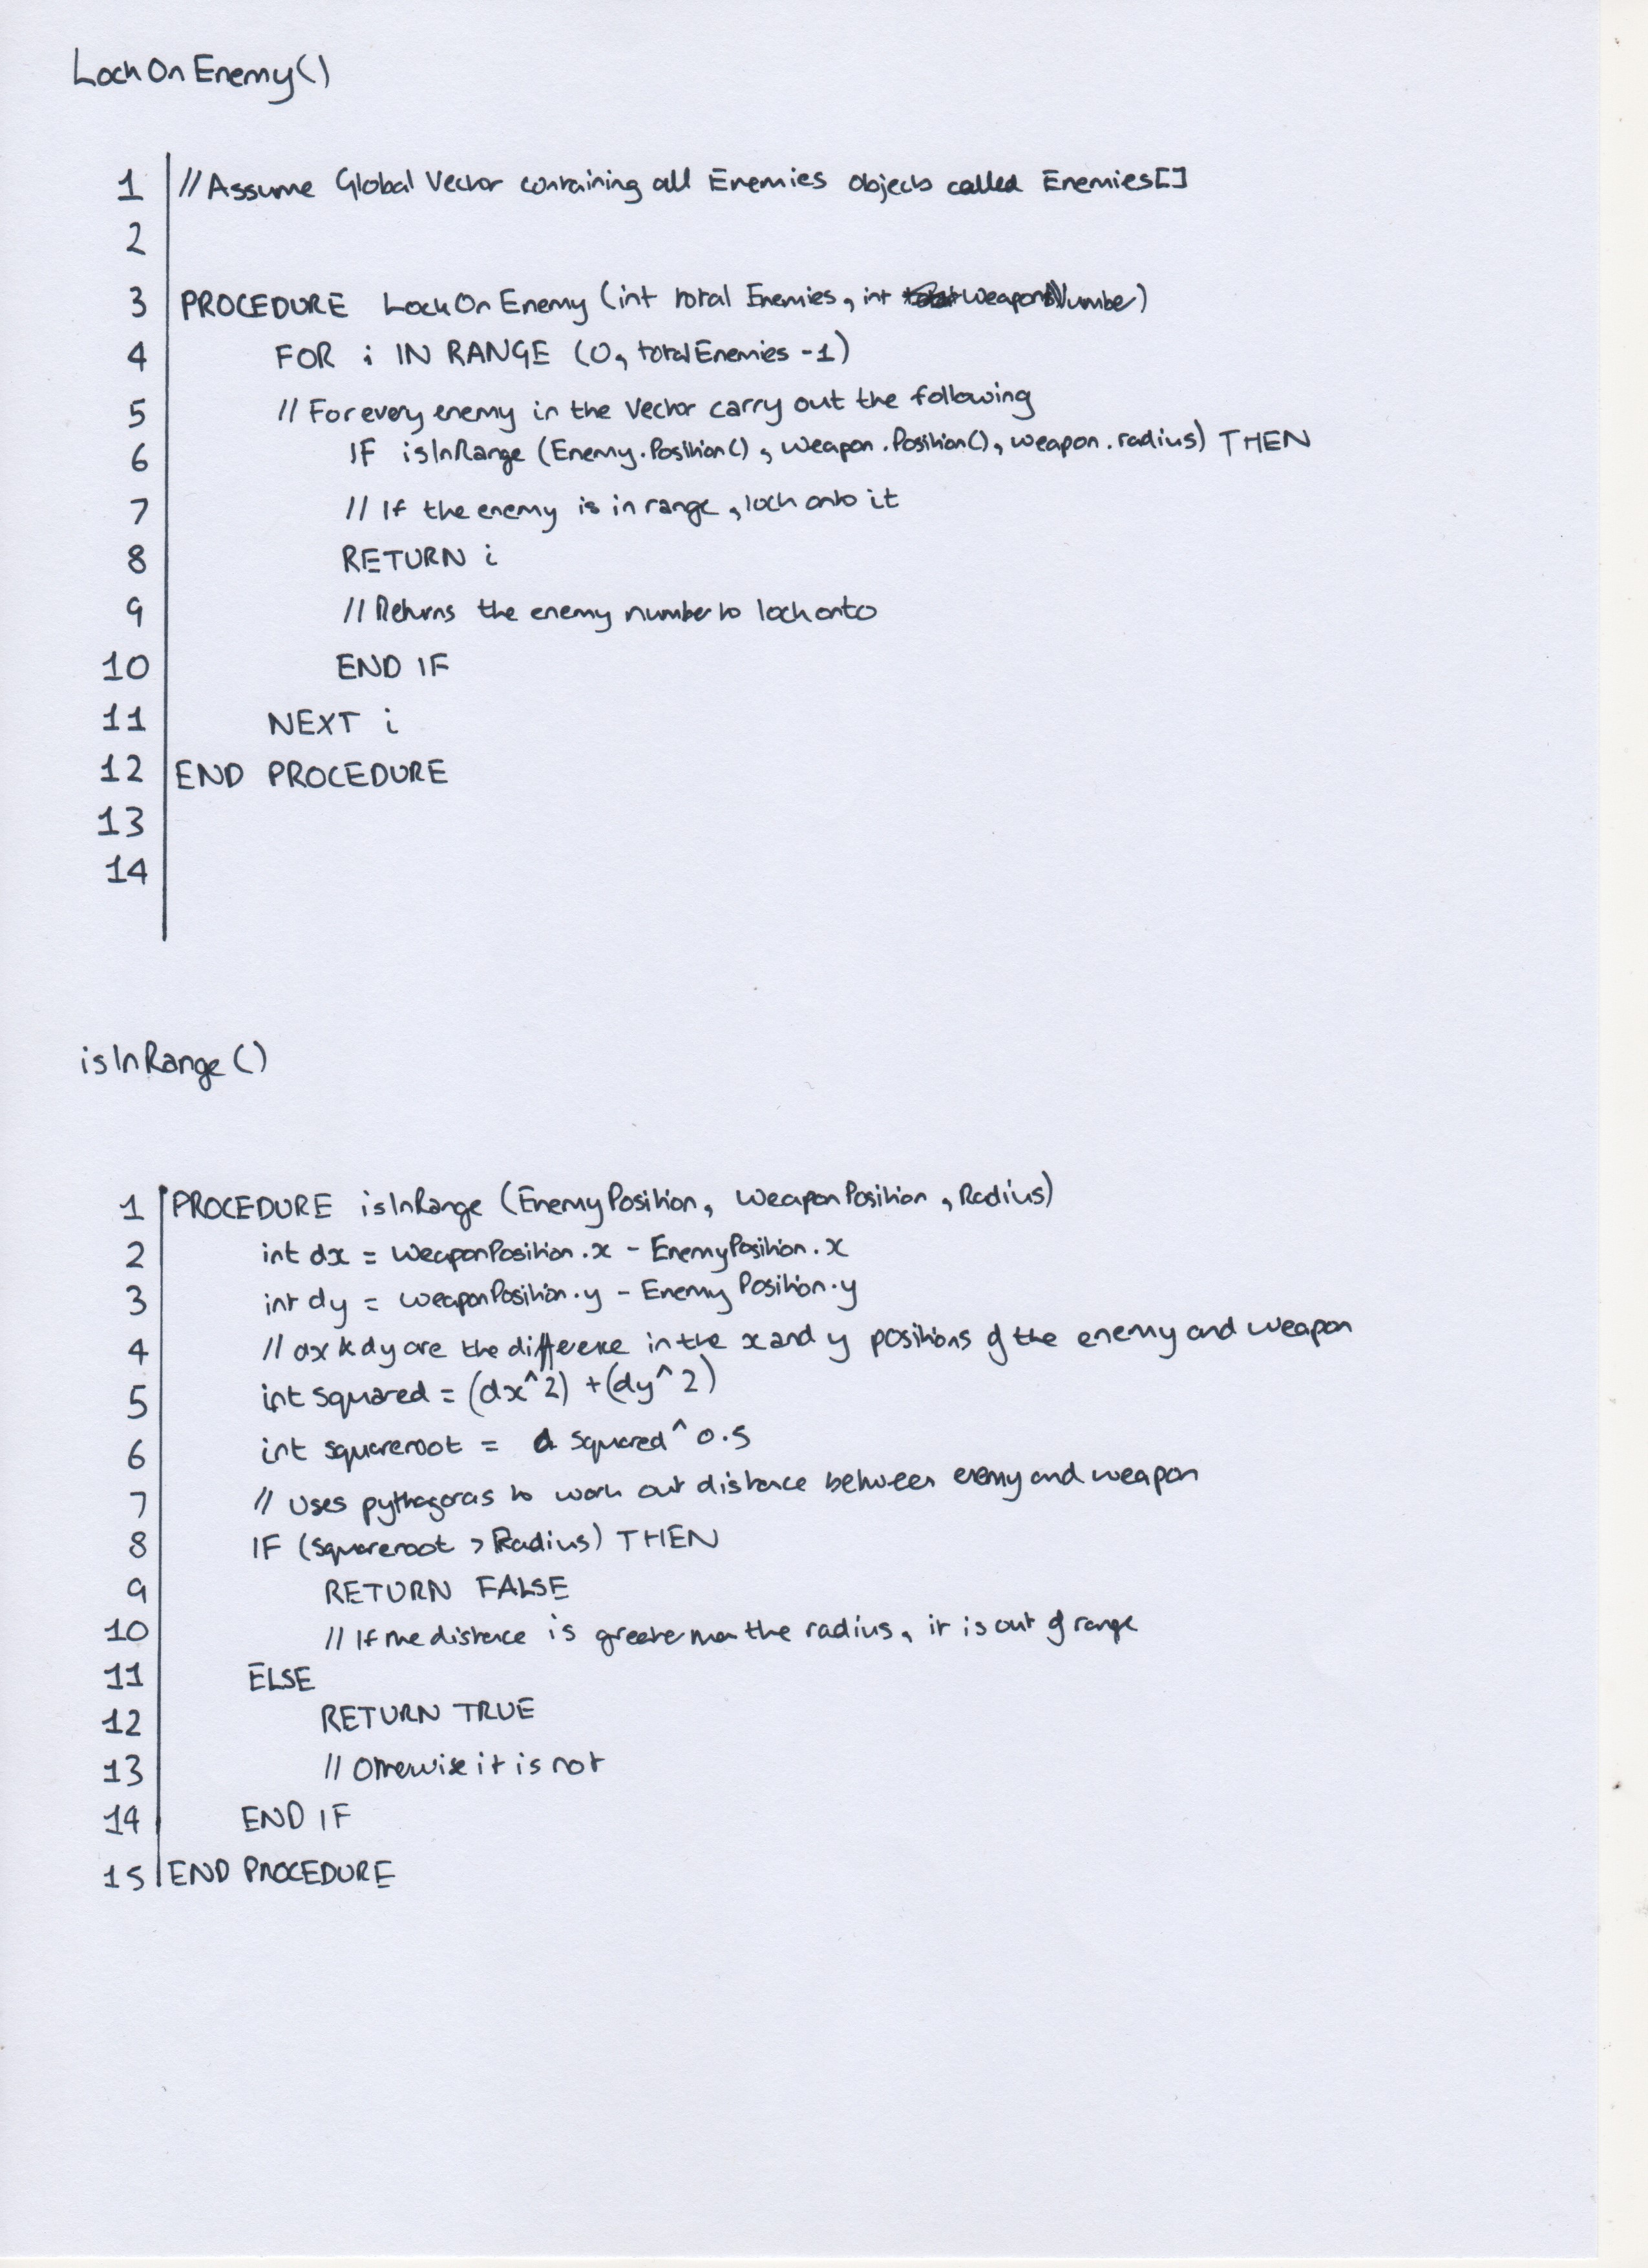 LockOnEnemy()
1 //Assume Global Vector containing all Enemies Objects called Enemies[]
2
3 PROCEDURE LockOnEnemy (int total Enemies, int WeaponNumber)
4 FOR i IN RANGE (0, totalEnemies -1)
5 // For every enemy in the Vector carry out the following
6 IF isInRange (Enemy.Position(), Weapon.Position(), weapon.radius) THEN
7 // If the enemy is in range, lock onto it
8 RETURN i
9 // Returns the enemy number to lock onto
10 END IF
11 NEXT i
12 END PROCEDURE
13
14
isInRange()
1 PROCEDURE isInRange (EnemyPosition, WeaponPosition, Radius)
2 int dx = WeaponPosition.x - EnemyPosition.x
3 int dy = WeaponPosition.y - EnemyPosition.y
4 // dx & dy are the difference in the x and y positions of the enemy and weapon
5 int squared = (dx^2) + (dy^2)
6 int squareroot = squared^0.5
7 // Uses pythagoras to work out distance between enemy and weapon
8 IF (squareroot > Radius) THEN
9 RETURN FALSE
10 // If the distance is greater than the radius, it is out of range
11 ELSE
12 RETURN TRUE
13 // Otherwise it is not
14 END IF
15 END PROCEDURE